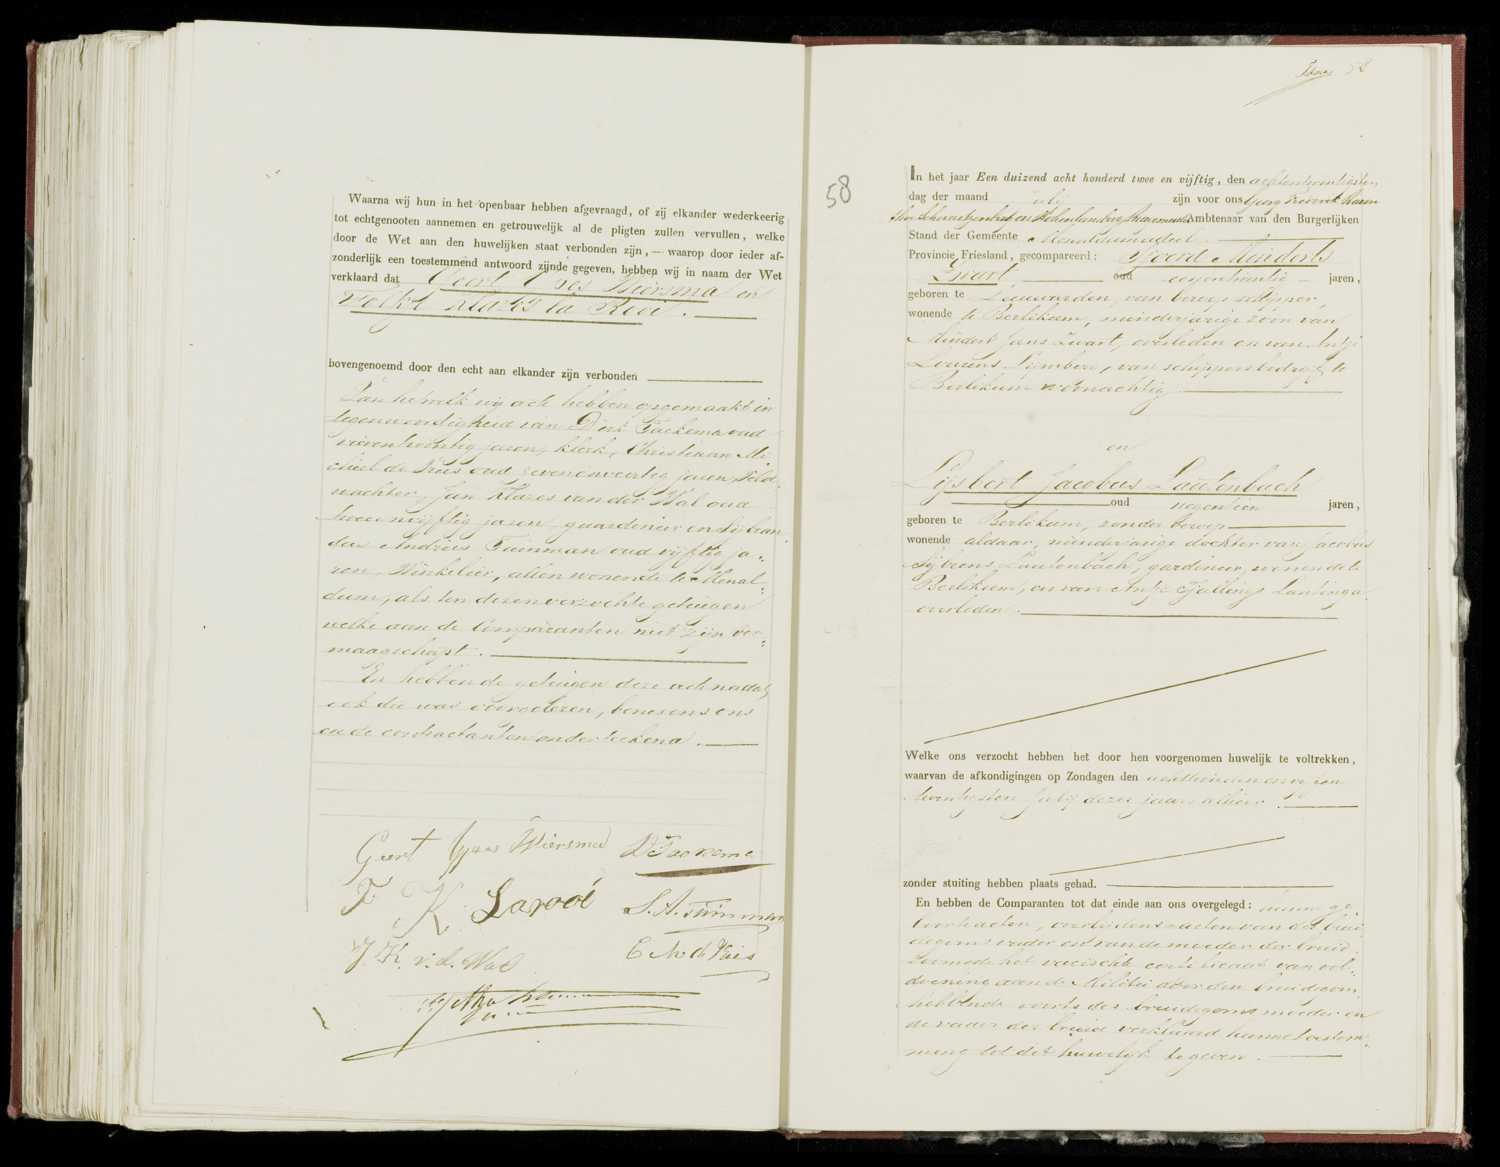 Waarna wij hun in het openbaar hebben afgevraagd, of zij elkander wederkeerig
tot echtgenooten aannemen en getrouwelijk al de pligten zullen vervullen, welke
door de Wet aan den huwelijken staat verbonden zijn, — waarop door ieder af-
zonderlijk een toestemmend antwoord zijnde gegeven, hebben wij in naam der Wet
verklaard dat Geert Ypes Wiersma en
Klazes la Roi.
bovengenoemd door den echt aan elkander zijn verbonden
Van hetwelk wij acte hebben opgemaakt in
tegenwoordigheid van Dirk Faekema oud
jaren, klerk, Christiaan Mi-
chiel de Vries oud zevenenveertig jaren, Veld-
wachter, Jan Klazes van der Wal oud
tweeenvijftig jaren, gardenier en Sijbran-
dus Andries Tuinman oud vijftig ja-
ren, Winkelier, allen wonende te Menal-
dum, als ten dezen verzochte getuigen
welke aan de Comparanten niet zijn ver-
maagschapt.
En hebben de getuigen deze acte nadat
ook die was voorgelezen, benevens ons
en de contractanten onderteekend.
Geert Ypes Wiersma D Faekema
F. K. Larooi S. A. Tuinman
J. K. v. d. Wal C M de Vries
58
58
In het jaar Een duizend acht honderd twee en vijftig, den achtentwintigsten
dag der maand July zijn voor ons Georg Frederik Baron
thoe Schwartzenberg en Hohenlansberg, Ambtenaar van den Burgerlijken
Stand der Gemeente Menaldumadeel
Provincie Friesland, gecompareerd: Sjoerd Minderts
Zwart, oud eenentwintig jaren,
geboren te Leeuwarden, van beroep schipper,
wonende te Berlikum, minderjarige zoon van
Mindert Jans Zwart, overleden en van Antje
Lourens, van schippersbedrijf, te
Berlikum woonachtig
en
Lijsbert Jacobus Lautenbach
oud negentien jaren,
geboren te Berlikum, zonder beroep
wonende aldaar, minderjarige dochter van Jacobus
Sijbrens Lautenbach, gardenier, wonende te
Berlikum, en van Antje Lantinga
overleden.
Welke ons verzocht hebben het door hen voorgenomen huwelijk te voltrekken,
waarvan de afkondigingen op Zondagen den achttienden en vijfen
twintigsten July dezes jaars alhier
zonder stuiting hebben plaats gehad.
En hebben de Comparanten tot dat einde aan ons overgelegd: hunne ge-
boorteacten, overlijdensacten van des brui-
degoms vader en van de moeder der bruid,
alsmede het vereischte certificaat van vol-
doening aan de Militie door den bruidegom,
hebbende voorts des bruidegoms moeder en
de vader der bruid verklaard hunne toestem-
ming tot dit huwelijk te geven.